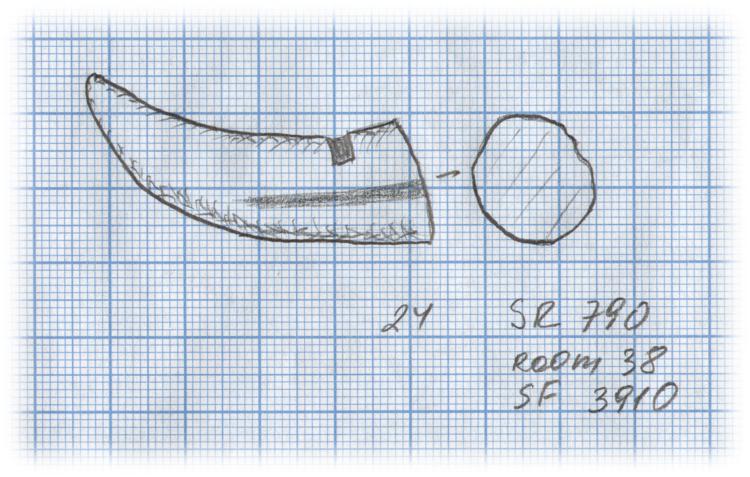 24
SR 790
ROOM 38
SF 3910